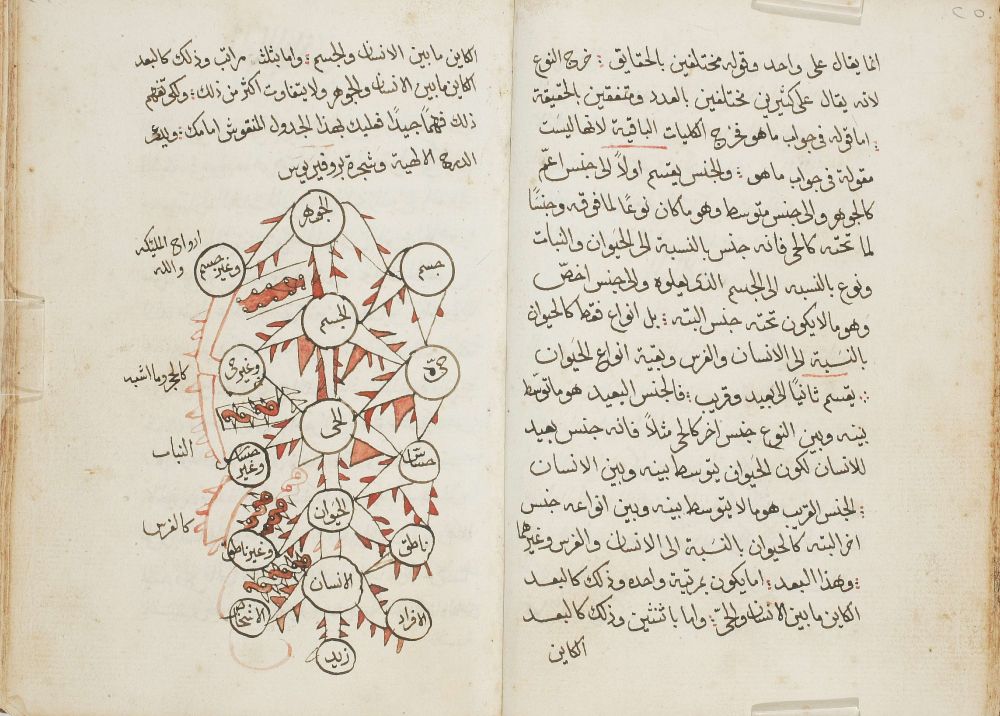 انما يقال على واحد وقوله مختلفين بالحقايق خرج النوع
لانه يقال على كثيرين مختلفين بالعدد ومتفقين بالحقيقة
اما قوله في جواب ما هو فخرج الكليات الباقية لانها ليست
مقولة في جواب ما هو والجنس يقسم اولاً الى جنس اعمّ
كالجوهر والى جنس متوسط وهو ما كان نوعًا لما فوقه وجنسًا
لما تحته كالحي فانه جنس بالنسبة الى الحيوان والنبات
ونوع بالنسبه الى الجسم الذي يعلوه والى جنس اخصّ
وهو ما لا يكون تحته جنس البته بل انواع فقط كالحيوان
بالنسبة الى الانسان والفرس وبقية انواع الحيوان
يقسم ثانيًا الى بعيد وقريب فالجنس البعيد هو ما توسّط
بينه وبين النوع جنس اخر كالحي مثلاً فانه جنس بعيد
للانسان لكون الحيوان يتوسط بينه وبين الانسان
الجنس القريب هو ما لا يتوسط بينه وبين انواعه جنس
اخر البته كالحيوان بالنسبة الى الانسان والفرس وغيرهما
وهذا البعد اما يكون بمرتبة واحده وذلك كالبعد
الكاين ما بين الانسان والحيّ واما باثنتين وذلك كالبعد
الكاين
الكاين ما بين الانسان والجسم واما بثلث مراتب وذلك كالبعد
الكاين ما بين الانسان والجوهر ولا يتفاوت اكثر من ذلك ولكي تفهم
ذلك فهمًا جيدًا فعليك بهذا الجدول المنقوش امامك ويدعى
الدرج الالهية وشجرة بروفيريوس
الجوهر
ارواح الملئكه
والله
وغير جسم
جسم
الجسم
كالحجر وما اشبه
وغير حي
حيّ
الحي
النبات
وغير حساس
حسّاس
الحيوان
كالفرس
وغير ناطق
ناطق
الانسان
الافراد
زيد